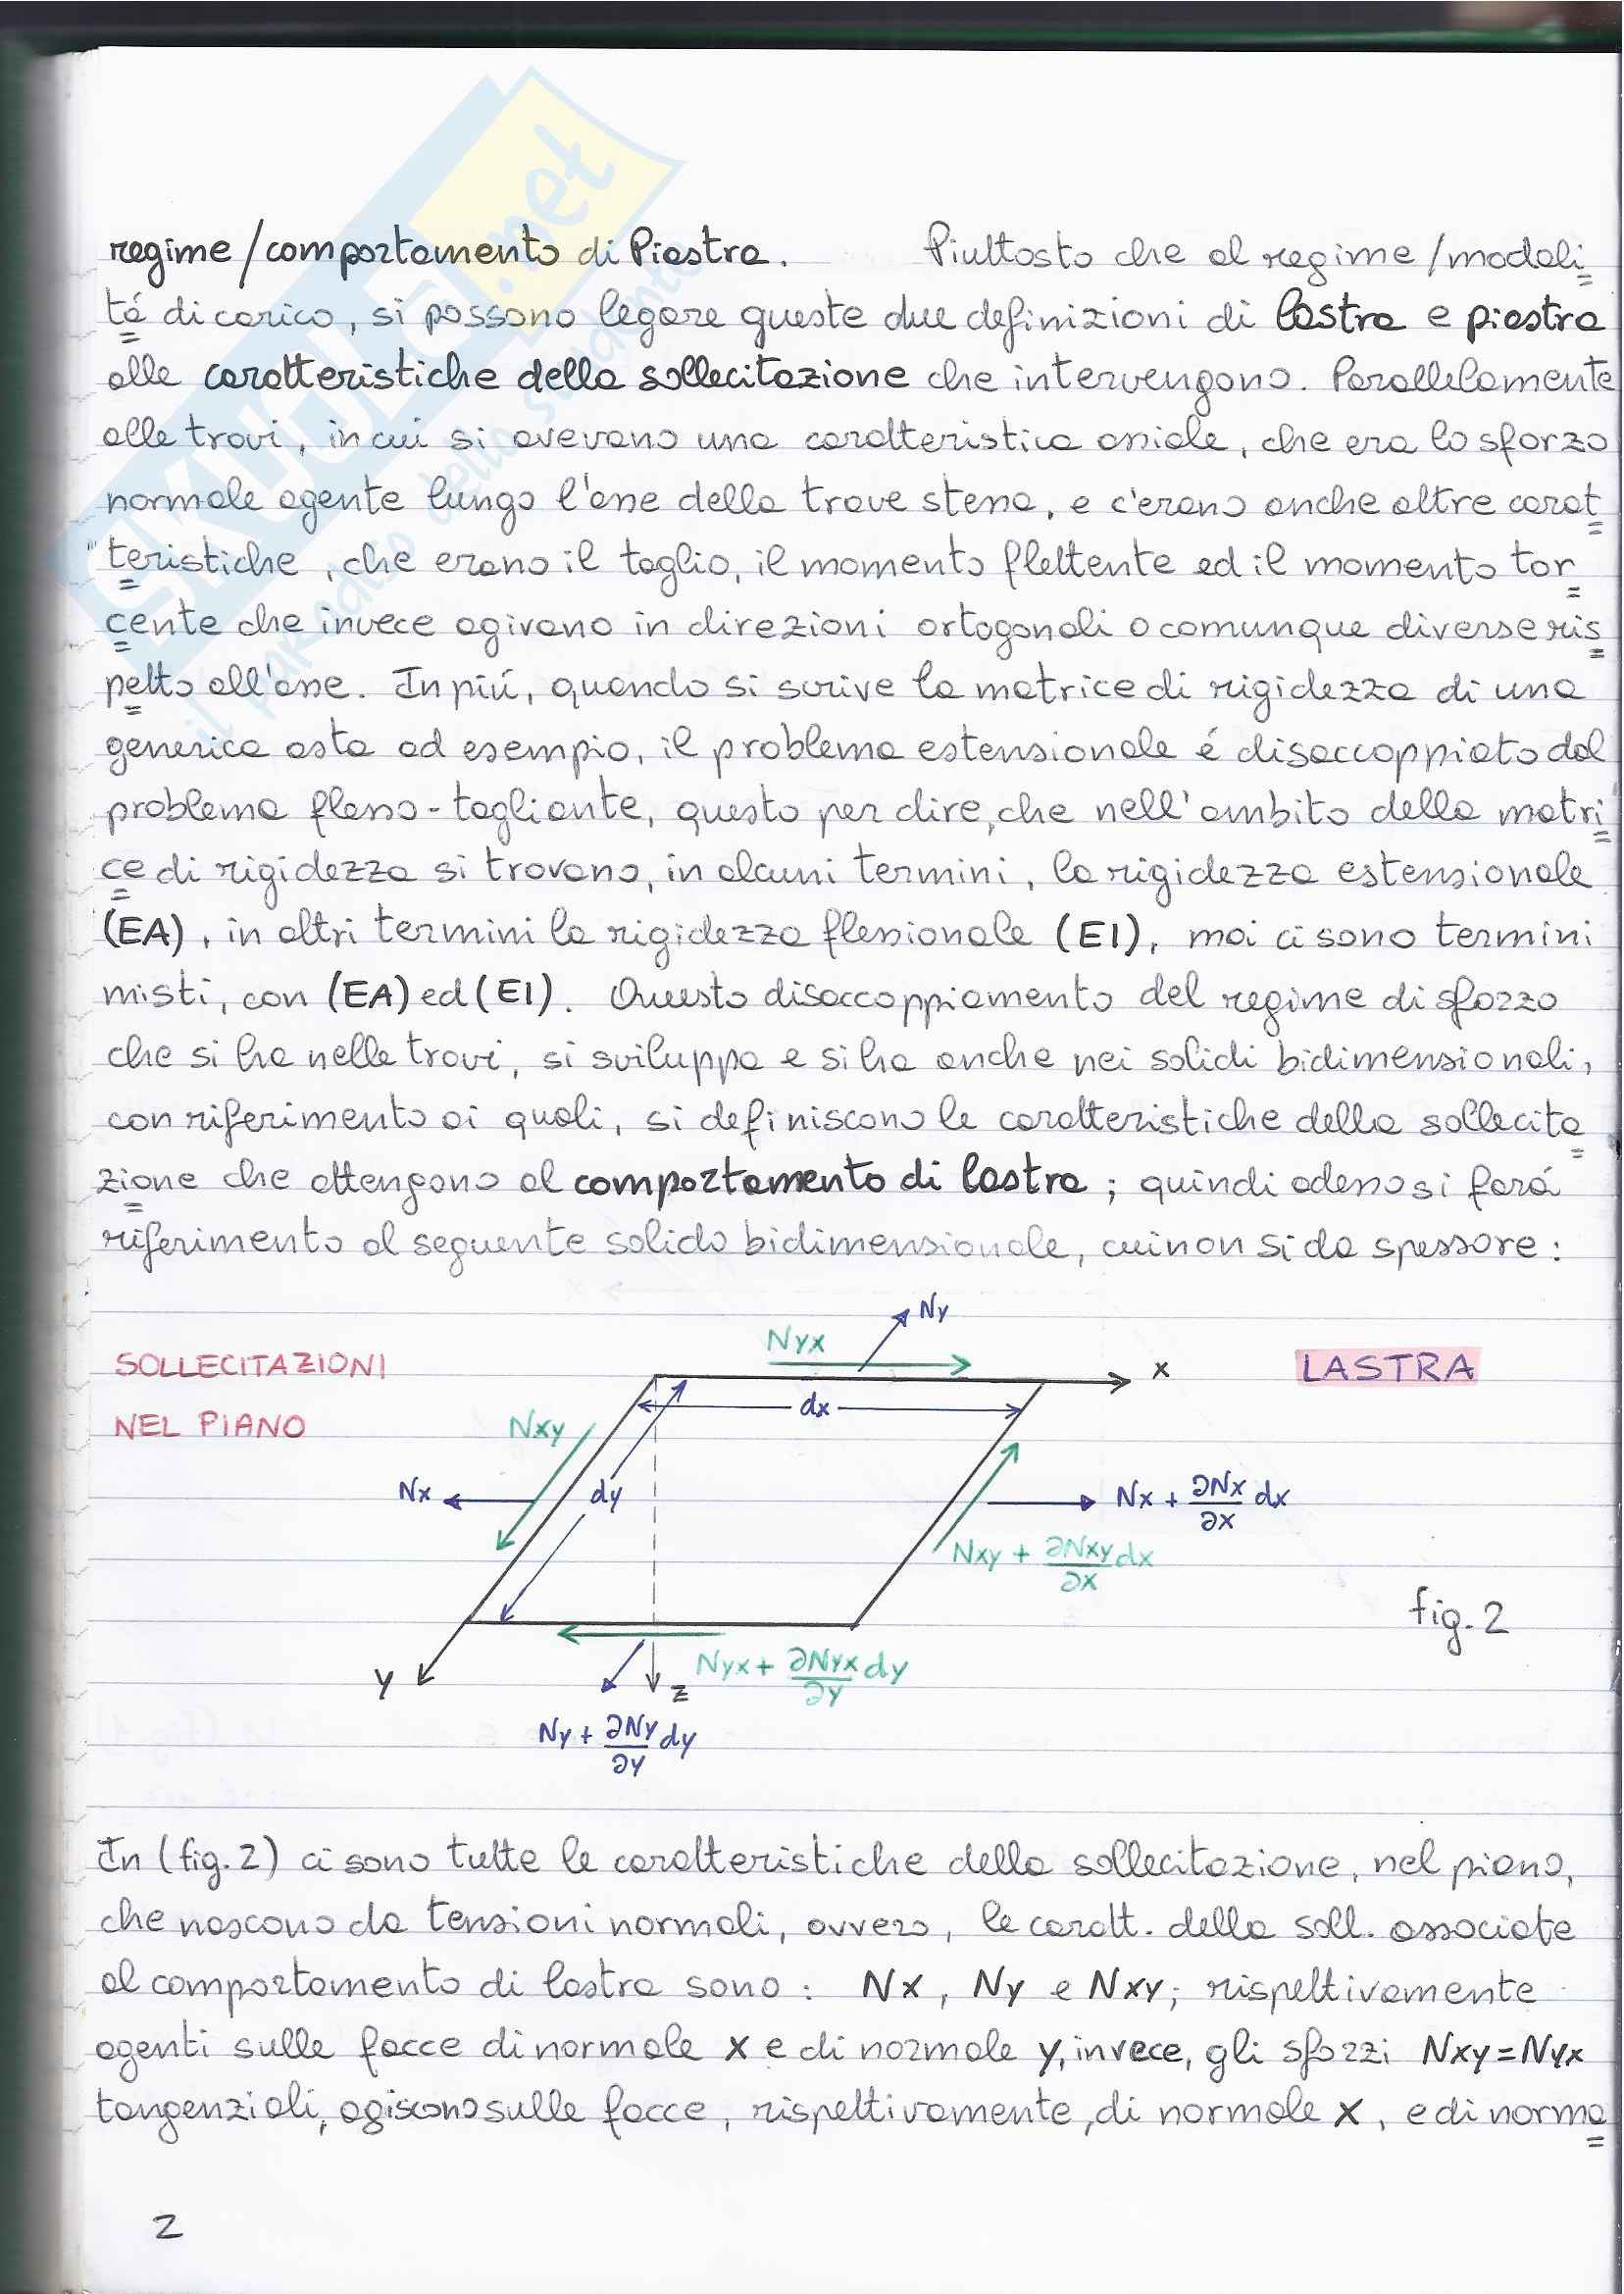 regime/comportamento di Piastra. Piuttosto che al regime/modali
tá di carico, si possono legare queste due definizioni di lastra e piastra
alle caratteristiche della sollecitazione che intervengono. Parallelamente
alle travi, in cui si avevano una caratteristica assiale, che era lo sforzo
normale agente lungo l'asse della trave stessa, e c'erano anche altre carat
teristiche, che erano il taglio, il momento flettente ed il momento tor
cente che invece agivano in direzioni ortogonali o comunque diverse ris
petto all'asse. In piú, quando si scrive la matrice di rigidezza di una
generica asta ad esempio, il problema estensionale é disaccoppiato dal
problema flesso-tagliante, questo per dire, che nell'ambito della matri
ce di rigidezza si trovano, in alcuni termini, la rigidezza estensionale
(EA), in altri termini la rigidezza flessionale (EI), mai ci sono termini
misti, con (EA) ed (EI). Questo disaccoppiamento del regime di sforzo
che si ha nelle travi, si sviluppa e si ha anche nei solidi bidimensionali,
con riferimento ai quali, si definiscono le caratteristiche della sollecita
zione che attengono al comportamento di lastra; quindi adesso si fará
riferimento al seguente solido bidimensionale, cui non si da spessore:
Ny
Nyx
SOLLECITAZIONI
LASTRA
x
dx
NEL PIANO
Nxy
Nx
dy
Nx + ∂Nx/∂x dx
Nxy + ∂Nxy/∂x dx
fig. 2
y
z
Nyx + ∂Nyx/∂y dy
Ny + ∂Ny/∂y dy
In (fig. 2) ci sono tutte le caratteristiche della sollecitazione, nel piano,
che nascono da tensioni normali, ovvero, le caratt. della soll. associate
al comportamento di lastra sono: Nx, Ny e Nxy; rispettivamente
agenti sulle facce di normale x e di normale y, invece, gli sforzi Nxy=Nyx
tangenziali, agiscono sulle facce, rispettivamente, di normale x, e di norma
2
SKUOLA.net
il paradiso dello studente